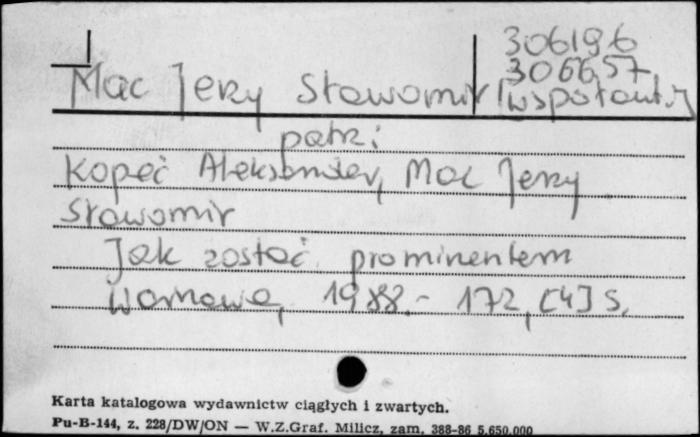 306196
306657
Mac Jerzy Sławomir [współaut.]
patrz:
Kopeć Aleksander, Mac Jerzy
Sławomir
Jak zostać prominentem
Warszawa, 1988.- 172, [4] s.
Karta katalogowa wydawnictw ciągłych i zwartych.
Pu-B-144, z. 228/DW/ON — W.Z.Graf. Milicz, zam. 388-86 5.650.000